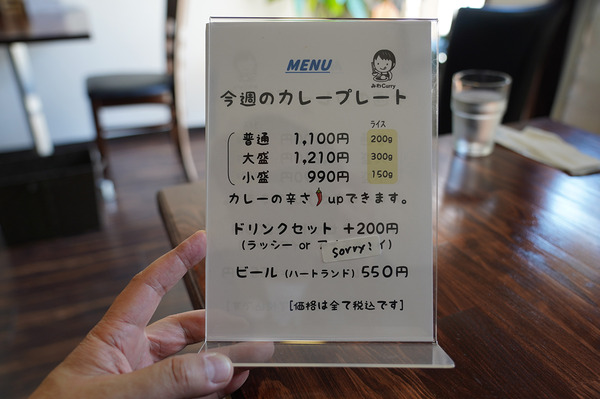 MENU
みわCurry
今週のカレープレート
ライス
普通 1,100円 200g
大盛 1,210円 300g
小盛 990円 150g
カレーの辛さupできます。
ドリンクセット +200円
(ラッシー or sorry! イ)
ビール (ハートランド) 550円
[価格は全て税込です]